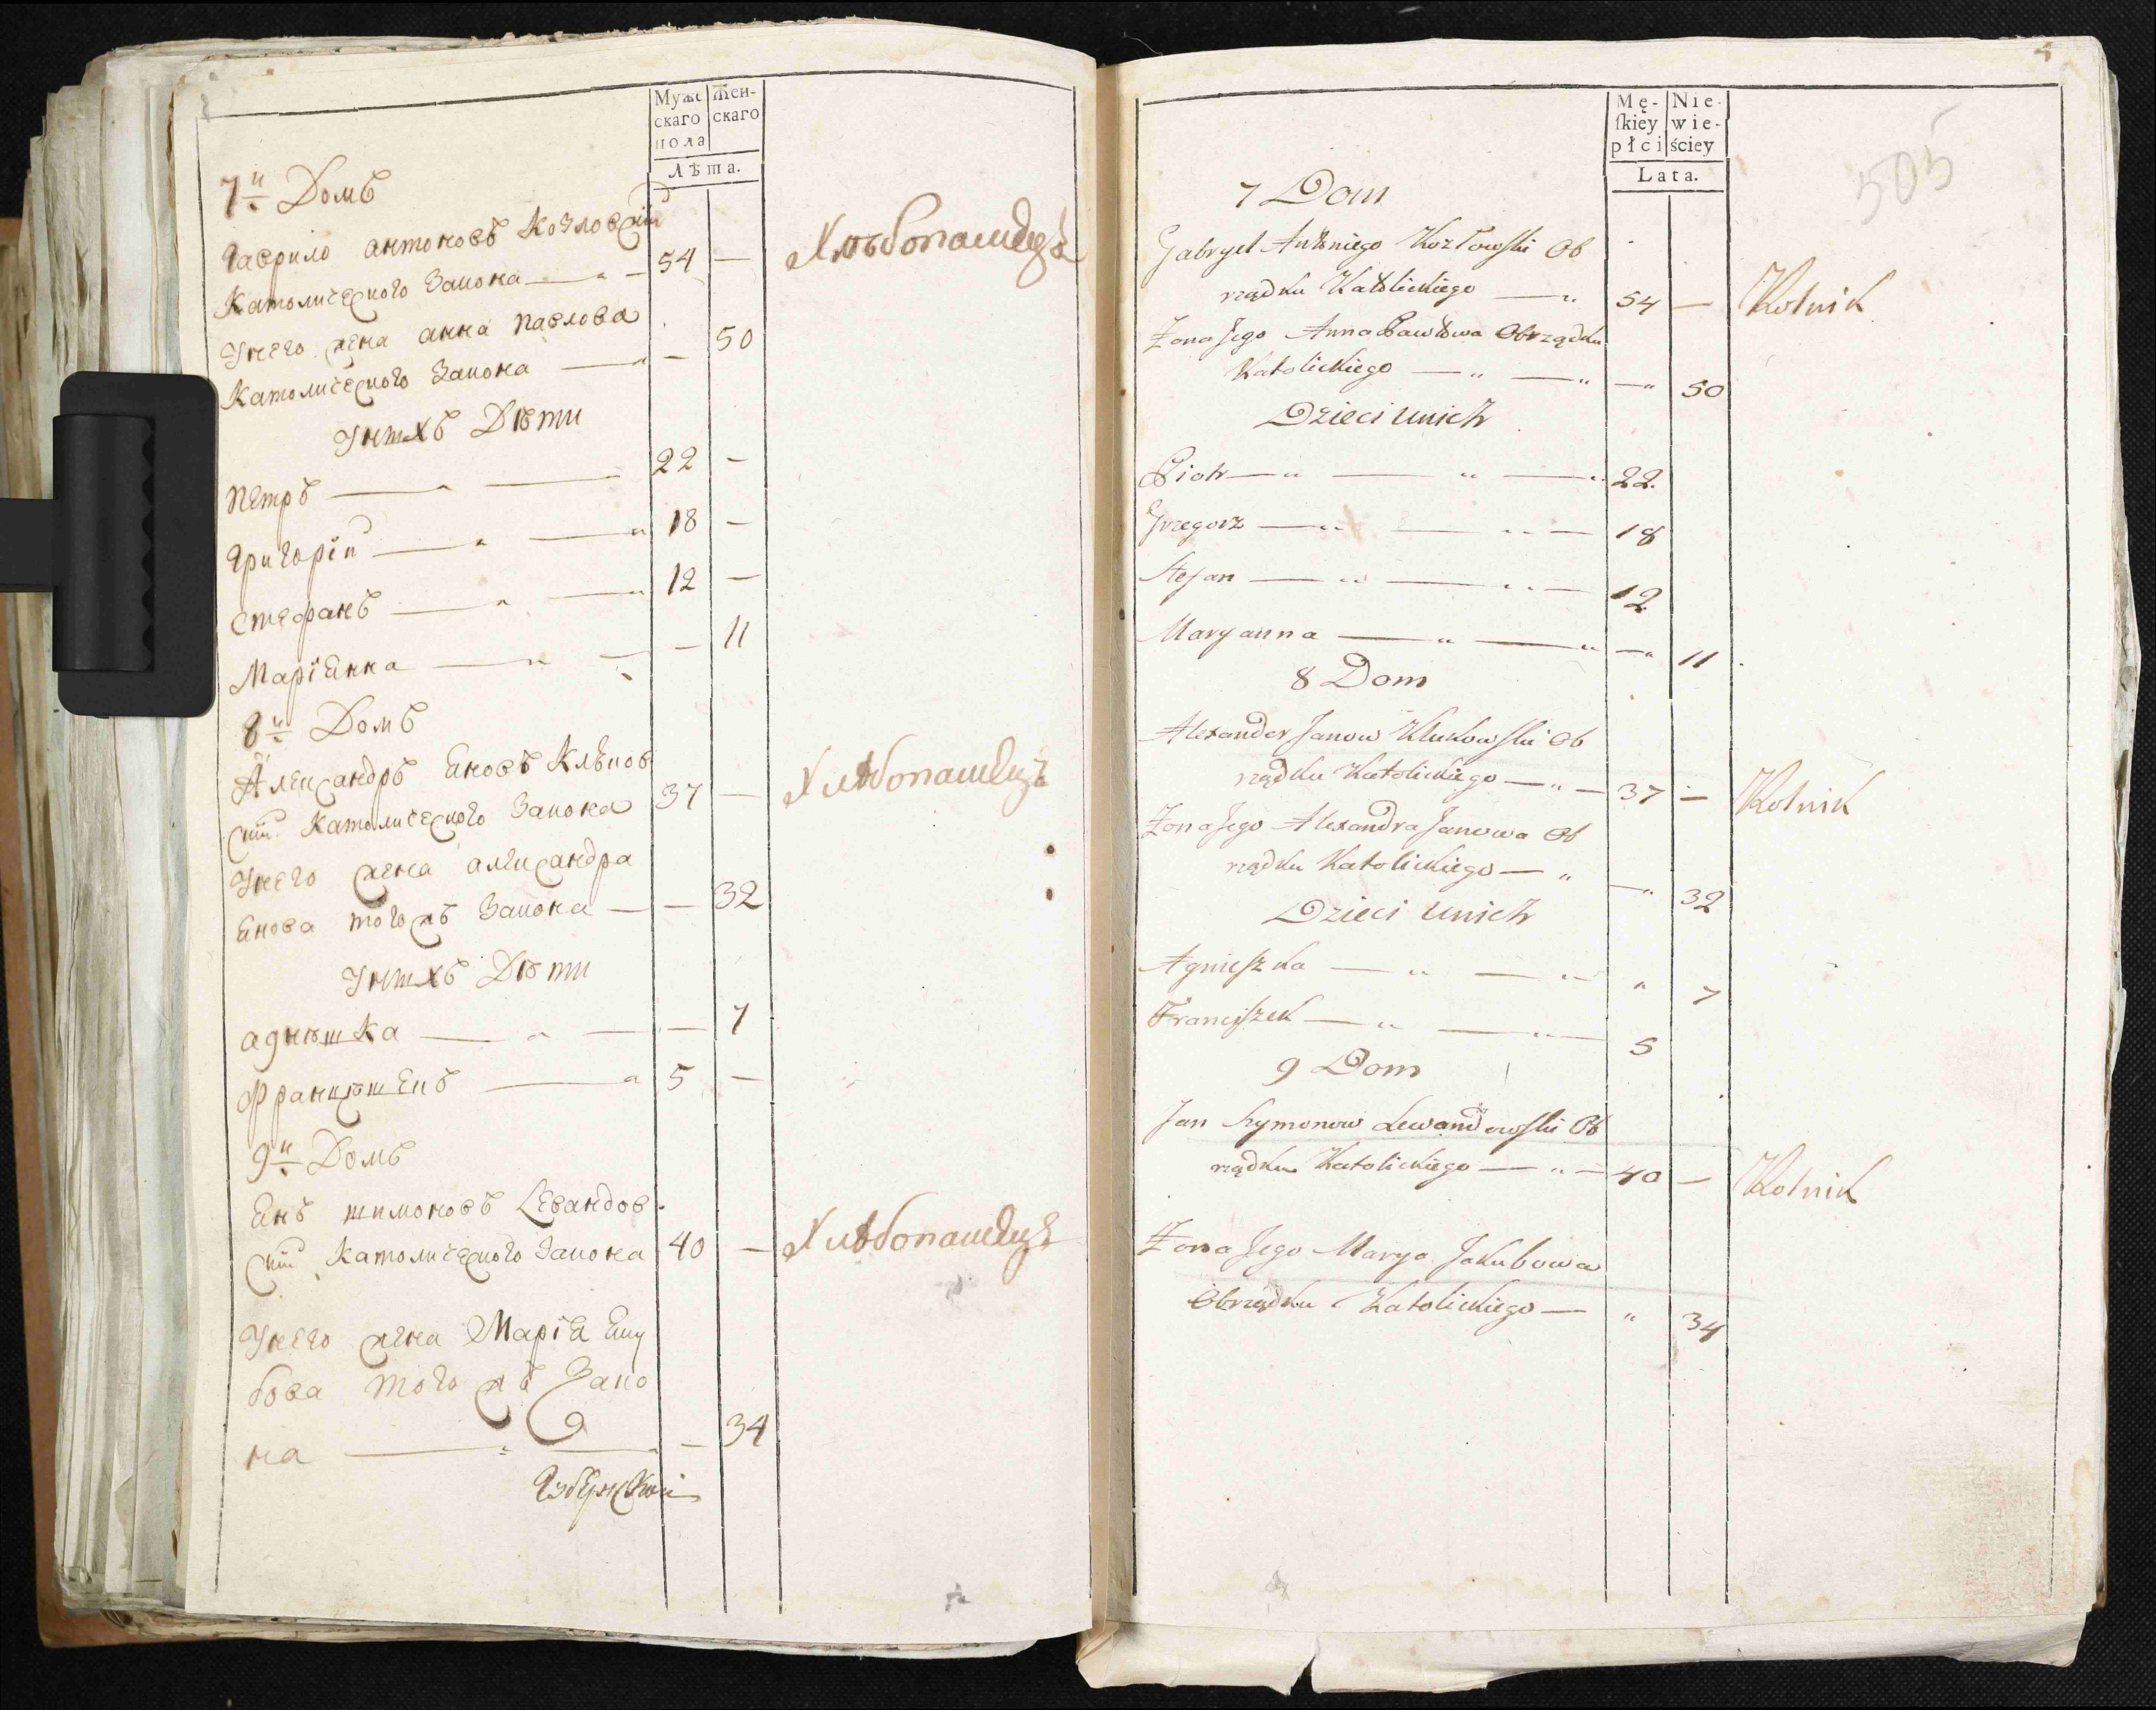 Муже
скаго
пола
Жен-
скаго
Лѣта.
7й Домъ
Гаврило антоновъ Козловскiй
Католического Закона — " — 54 —
Унего жена анна павлова
Католического Закона — " — 50
Унихъ Дѣти
Петръ — " — 22 —
Григорiй — " — " 18 —
Стефанъ — " — " 12 —
Марiянна — " — — 11
8й Домъ
Александръ Яновъ Клѣков
скiй Католического Закона 37 —
Унего жена александра
Янова того жъ Закона — — 32
Унихъ Дѣти
агнѣшка — " — — 7
Францѣшекъ — " 5 —
9й Домъ
Янъ шимоновъ Левандов
скiй Католического Закона 40 —
Унего жена Марiя Яку
бова того жъ Зако
на — " — " — 34
Хлѣбопашецъ
Хлѣбопашецъ
Хлѣбопашецъ
Mę-
skiey
płci
Nie-
wie-
ściey
Lata.
505
7 Dom
Gabryel Antoniego Kozłowski Ob
rządku Katolickiego — " 54 — Rolnik
Zona Jego Anna Pawłowa Obrządku
Katolickiego — " — " — " 50
Dzieci unich
Piotr — " — " — " 22.
Grzegorz — " — " — 18
Stefan — " — " — 12
Maryanna — " — " — " 11
8 Dom
Alexander Janow Klukowski Ob
rządku Katolickiego — " — 37 — Rolnik
Zona Jego Alexandra Janowa Ob
rządku Katolickiego — " — " 32
Dzieci unich
Agnieszka — " — " " 7
Franciszek — " — " — 5
9 Dom
Jan Szymonow Lewandowski Ob
rządku Katolickiego — " — 40 — Rolnik
Zona Jego Marya Jakubowa
Obrządku Katolickiego — " 34